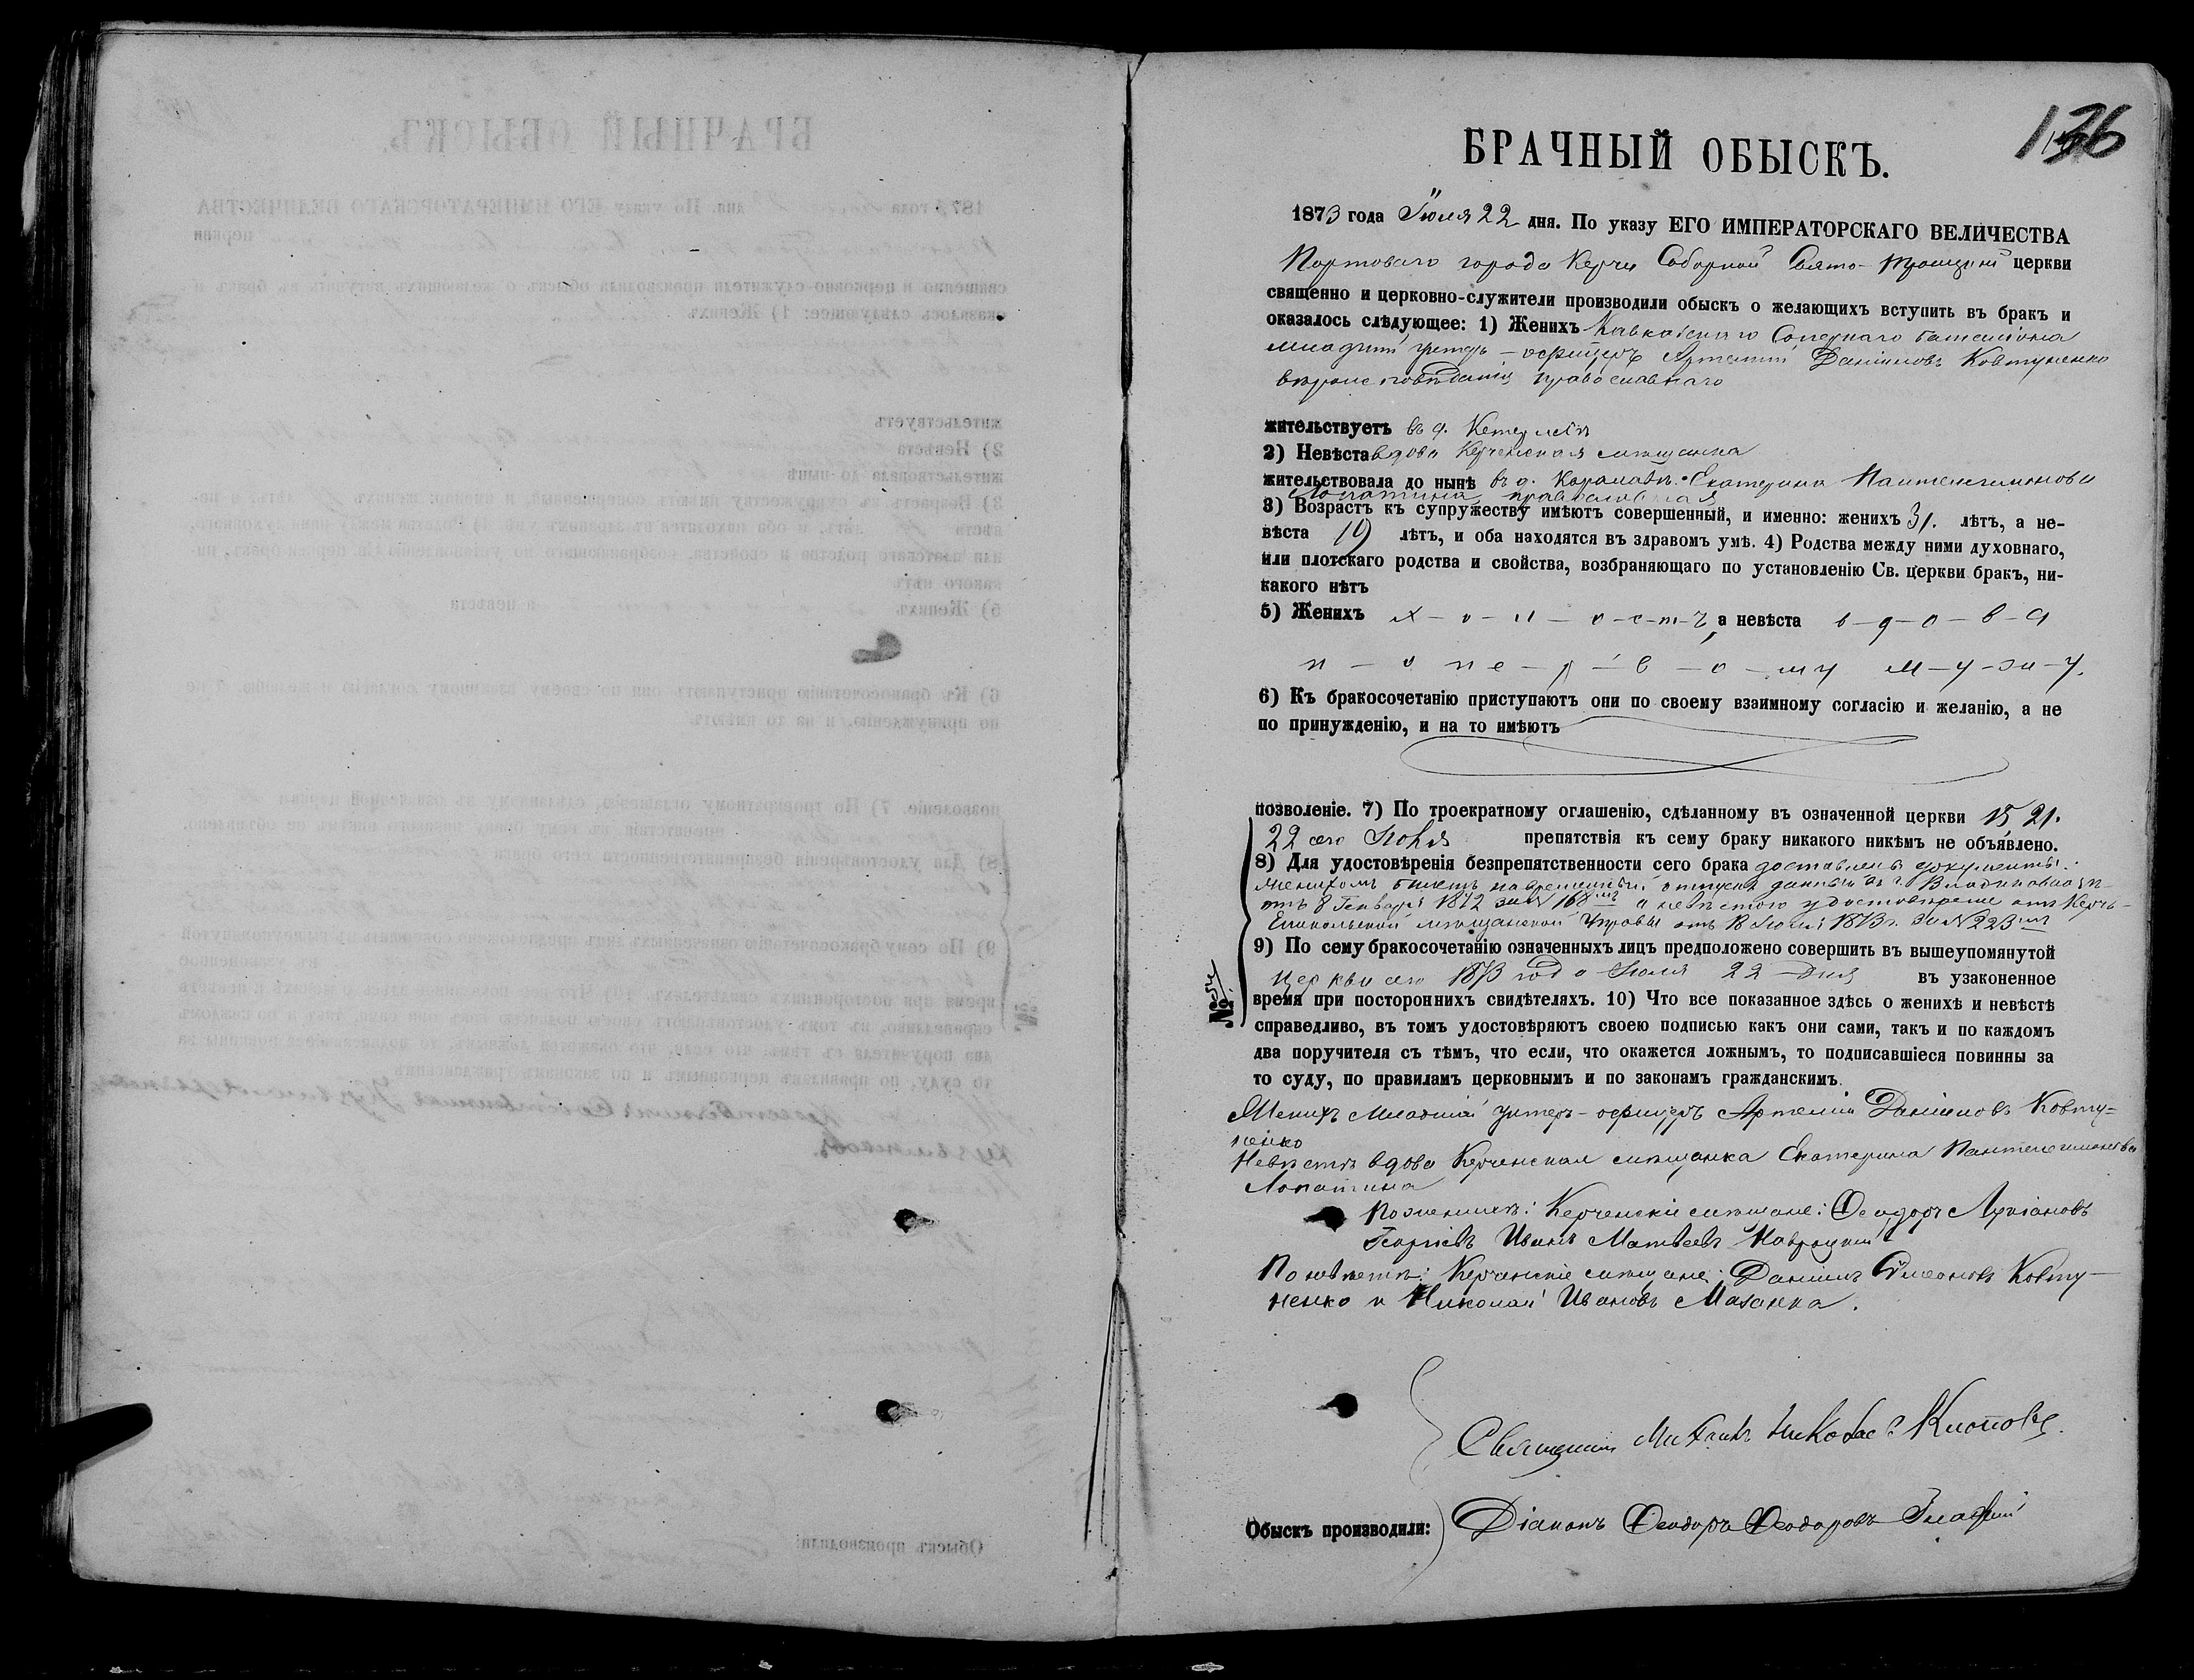 136
БРАЧНЫЙ ОБЫСКЪ.
1873 года Іюля 22 дня. По указу ЕГО ИМПЕРАТОРСКАГО ВЕЛИЧЕСТВА
Портоваго города Керчи Соборной Свято-Троицкой церкви
священно и церковно-служители производили обыскъ о желающихъ вступить въ бракъ и
оказалось слѣдующее: 1) Женихъ Кавказскаго Сапернаго баталіона
младшій унтеръ-офицеръ Артемій Даніиловъ Ковтуненко
вѣроисповѣданія православнаго
жительствуетъ въ д.
2) Невѣста вдова Керченская мѣщанка
жительствовала до нынѣ въ д. Екатерина Пантелеимонова
Лопатина православная
3) Возрастъ къ супружеству имѣютъ совершенный, и именно: женихъ 31. лѣтъ, а не-
вѣста 19 лѣтъ, и оба находятся въ здравомъ умѣ. 4) Родства между ними духовнаго,
или плотскаго родства и свойства, возбраняющаго по установленію Св. церкви бракъ, ни-
какого нѣтъ
5) Женихъ х-о-л-о-с-т-ъ, а невѣста в-д-о-в-а
п-о пе-р-в-о-му м-у-ж-у.
6) Къ бракосочетанію приступаютъ они по своему взаимному согласію и желанію, а не
по принужденію, и на то имѣютъ
позволеніе. 7) По троекратному оглашенію, сдѣланному въ означенной церкви 15, 21.
22 сего Іюля препятствія къ сему браку никакого никѣмъ не объявлено.
8) Для удостовѣренія безпрепятственности сего брака доставлены документы:
женихомъ билетъ на временный отпускъ данный въ г. Владикавказѣ
отъ 8 Генваря 1872 за № 168мъ и невѣстою удостовѣреніе отъ Керчь-
Еникольской мѣщанской Управы отъ 18 Іюля 1873 г. за № 223мъ
9) По сему бракосочетанію означенныхъ лицъ предположено совершить въ вышеупомянутой
церкви сего 1873 года Іюля 22 дня въ узаконенное
время при постороннихъ свидѣтеляхъ. 10) Что все показанное здѣсь о женихѣ и невѣстѣ
№
справедливо, въ томъ удостовѣряютъ своею подписью какъ они сами, такъ и по каждомъ
два поручителя съ тѣмъ, что если, что окажется ложнымъ, то подписавшіеся повинны за
то суду, по правиламъ церковнымъ и по законамъ гражданскимъ.
Женихъ младшій унтеръ-офицеръ Артемій Даніиловъ Ковту=
ненко
Невѣста вдова Керченская мѣщанка Екатерина Пантелеимонова
Лопатина
По женихѣ: Керченскіе мѣщане: Феодоръ
Георгіевъ Иванъ Матвеевъ Навроцкій
По невѣстѣ: Керченскіе мѣщане: Даніилъ Симеоновъ Ковту-
ненко и Николай Ивановъ Мазанка.
Священникъ Михаилъ Николаевъ Клоповъ
Обыскъ производили: Діаконъ Феодоръ Феодоровъ